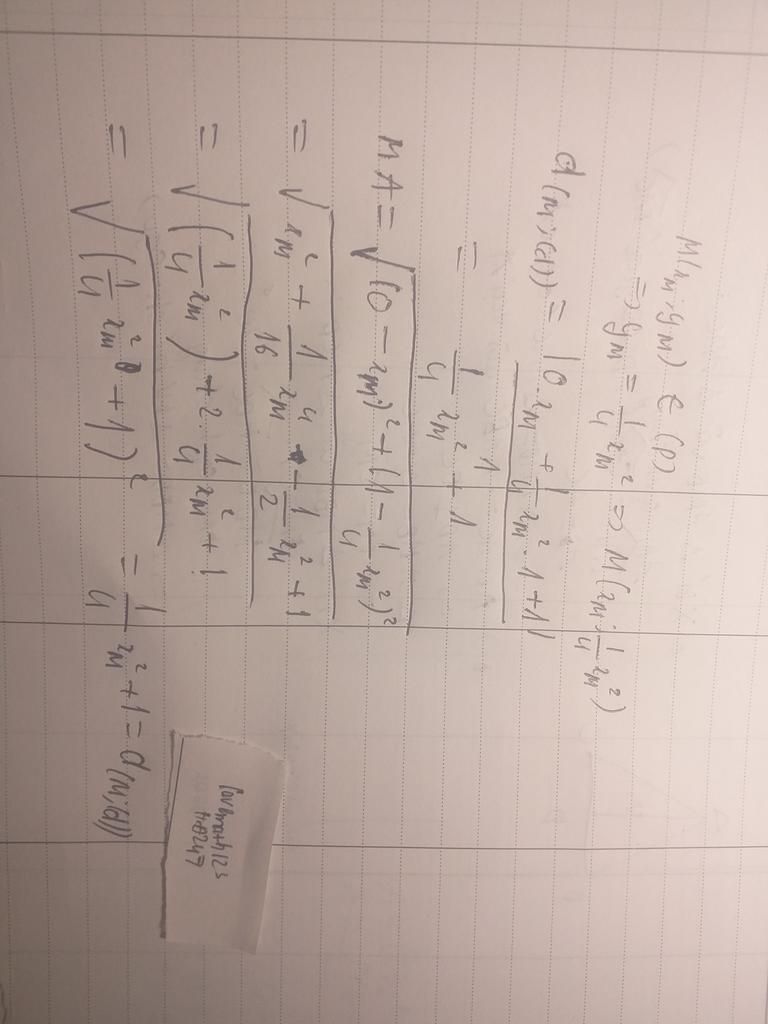 M(x_M; y_M) ∈ (P)
=> y_M = 1/4 x_M² => M(x_M; 1/4 x_M²)
d(M;(d)) = |0.x_M + 1/4 x_M² · 1 + 1| / 1
= 1/4 x_M² + 1
MA = √((0 - x_M)² + (1 - 1/4 x_M²)²)
= √(x_M² + 1/16 x_M⁴ - 1/2 x_M² + 1)
= √((1/4 x_M²) + 2 · 1/4 x_M² + 1
= √((1/4 x_M² + 1)²) = 1/4 x_M² + 1 = d(M;(d))
lovemath123